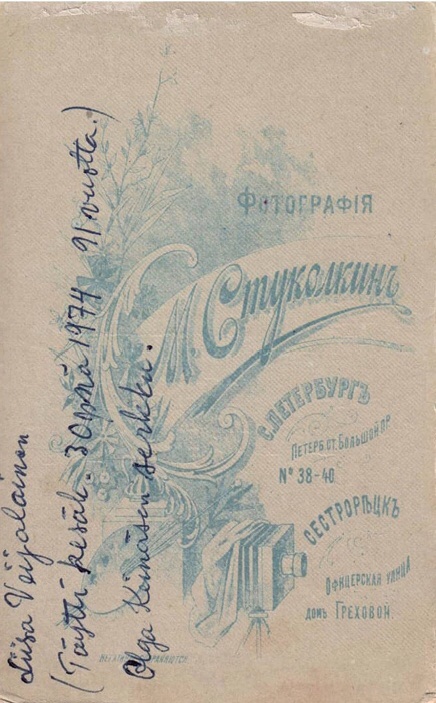 Фотографія
М. Стуколкинъ
С. ПЕТЕРБУРГЪ
ПЕТЕРБ. СТ. БОЛЬШОЙ ПР
№ 38-40
СЕСТРОРѢЦКЪ
ОФИЦЕРСКАЯ УЛИЦА
ДОМЪ ГРЕХОВОЙ.
Liisa Veijalainen
(Täytti kesäk. 30 pnä 1974 91 vuotta.)
Olga serkku.